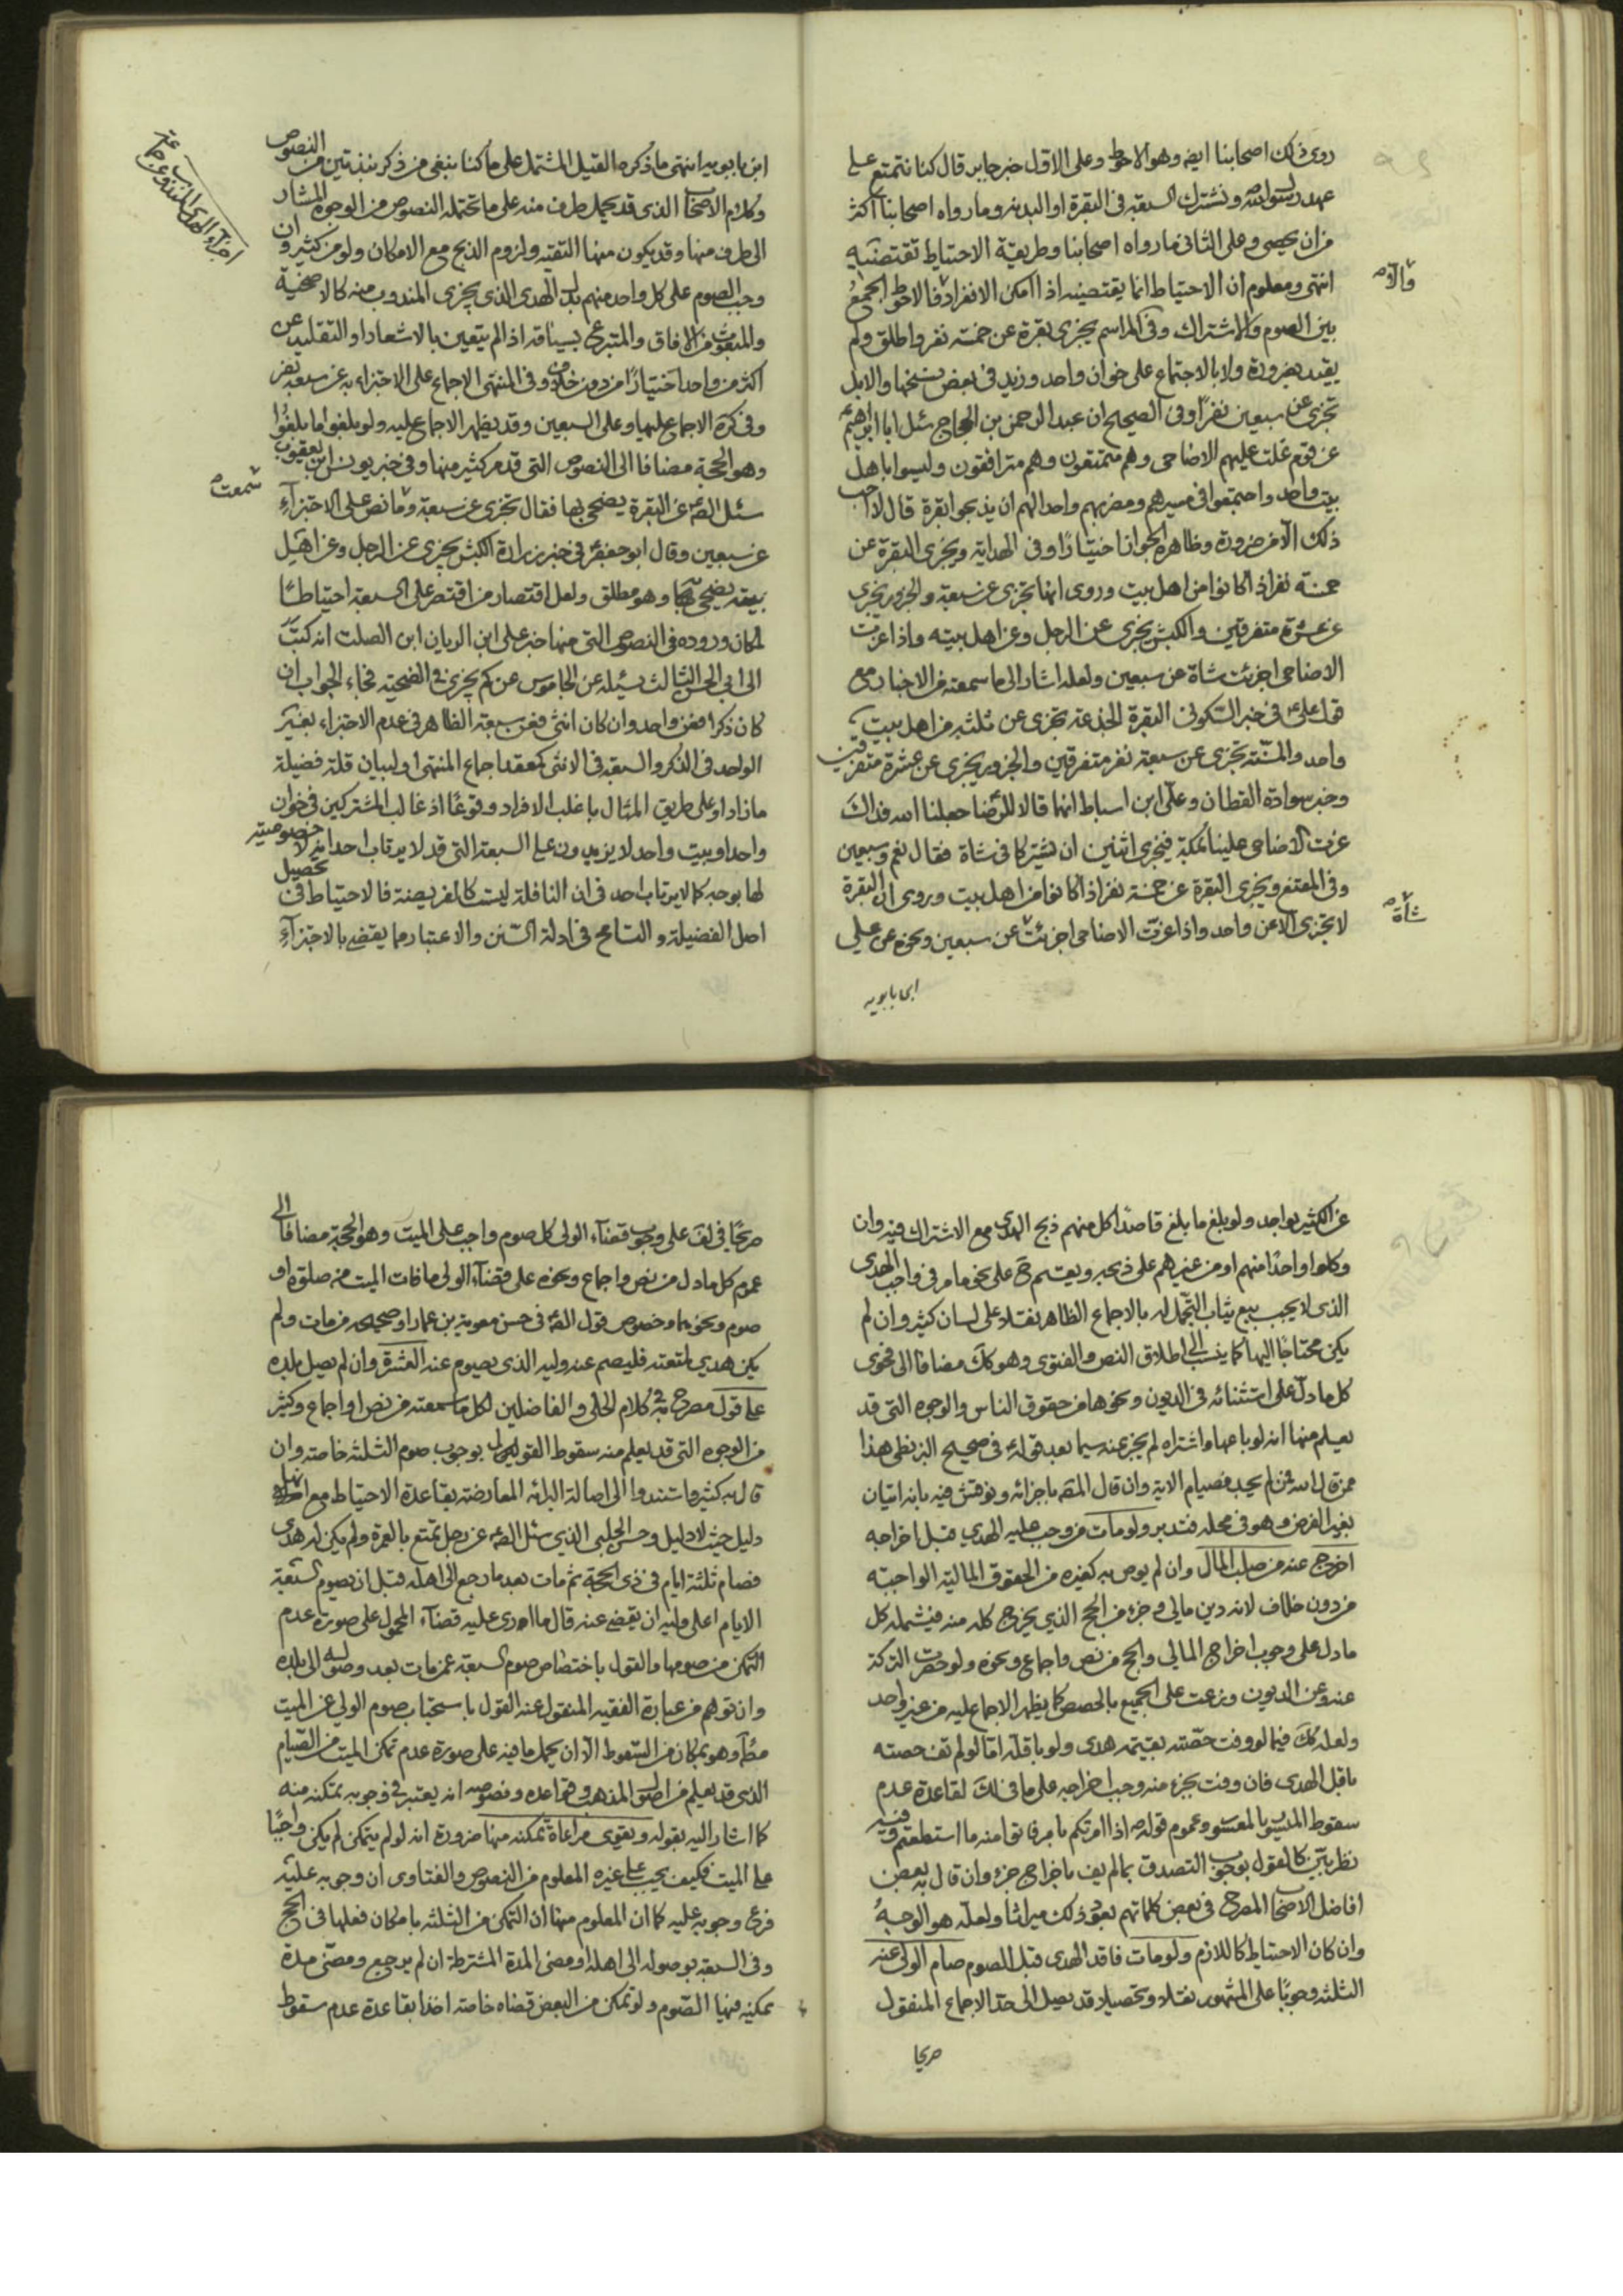 روى ذلك اصحابنا ايضه وهو الاحوط وعلى الاول خبر جابر قال كنا نتمتع على
عهد رسول الله ونشترك السبعة فى البقرة او البدنه وما رواه اصحابنا اكثر
من ان يحصى وعلى الثانى ما رواه اصحابنا وطريقة الاحتياط تقتضيه
انتهى ومعلوم ان الاحتياط انما يقتضيه اذا امكن الانفراد فالاحوط الجمع
والا
بين الصوم والاشتراك وفى المراسم يجزى بقرة عن خمسة نفر واطلق ولم
يقيد بضرورة ولا بالاجتماع على خوان واحد وزيد فى بعض نسخها والابل
تجزى عن سبعين نفرا وفى الصحيح ان عبد الرحمن بن الحجاج سئل ابا ابرهيم
عن قوم غلت عليهم الاضاحى وهم متمتعون وهم مترافقون وليسوا باهل
بيت واحد واجتمعوا فى مسيرهم ومضربهم واحد الهم ان يذبحوا بقرة قال لا احب
ذلك الا من ضرورة وظاهره الجواز اختيارا وفى الهداية ويجزى البقرة عن
خمسة نفر اذا كانوا من اهل بيت وروى انها تجزى عن سبعة والجزور يجزى
عن عشرة متفرقين والكبش يجزى عن الرجل وعن اهل بيته واذا عزت
الاضاحى اجزئت شاة عن سبعين ولعله اشار الى ما سمعته من الاخبار مع
قول على فى خبر السكونى البقرة الجذعة تجزى عن ثلثة من اهل بيت
واحد والمسنة تجزى عن سبعة نفر متفرقين والجزور يجزى عن عشرة متفرقين
وخبر سوادة القطان وعلى ابن اسباط انهما قالا للرضا جعلنا الله فداك
عزت الاضاحى علينا بمكة فيجزى اثنين ان يشتركا فى شاة فقال نعم وسبعين
وفى المقنع ويجزى البقرة عن خمسة نفر اذا كانوا من اهل بيت وروى ان البقرة
لا تجزى الا عن واحد واذا عزت الاضاحى اجزئت عن سبعين ونحوه عن على
شاة
ابن بابويه
ابن بابويه انتهى ما ذكره القيل المشتمل على ما كنا بنغى من ذكر نبذتين من النصوص
وكلام الاصحاب الذى قد يحمل طرف منه على ما تحتمله النصوص من الوجوه المشار
الى طرف منها وقد يكون منها التقيه ولزوم الذبح مع الامكان ولو من كثيرون ان
وجب الصوم على كل واحد منهم بدل الهدى الذى يجزى المندوب منه كالاضحية
والمبعوث من الافاق والمتبرع بسياقه اذا لم يتعين بالاشعار او التقليد عن
اكثر من واحد اختيارا من دون خلاف وفى المنتهى الاجماع على الاجتزاء به عن سبعة نفر
وفى كره الاجماع عليها وعلى السبعين وقد يظهر الاجماع عليه ولو بلغوا ما بلغوا
وهو الحجة مضافا الى النصوص التى قد مر كثير منها وفى خبر يونس ابن يعقوب
سئل الصه عن البقرة يضحى بها فقال تجزى عن سبعة وما نص على الاجتزاء
سمعت
عن سبعين وقال ابو جعفر فى خبر زرارة الكبش يجزى عن الرجل وعن اهل
بيته يضحى بها وهو مطلق ولعل اقتصار من اقتصر على السبعة احتياطا
لمكان وروده فى النصوص التى منها خبر على ابن الريان ابن الصلت انه كتب
الى ابى الحسن الثالث يسئله عن الجاموس عن كم يجزى فى الضحية فجاء الجواب ان
كان ذكرا فعن واحد وان كان انثى فعن سبعة الظاهر فى عدم الاجتزاء بغير
الواحد فى الذكر والسبعة فى الانثى كمعقد اجماع المنتهى او لبيان قلة فضيلة
ما زاد او على طريق المثال باغلب الافراد وقوعا اذ غالب المشتركين فى خوان
واحد او بيت واحد لا يزيدون على السبعة التى قد لا يرتاب احد انه لا خصوصية
لها بوجه كما لا يرتاب احد فى ان النافلة ليست كالفريضة فالاحتياط فى تحصيل
اصل الفضيلة والتسامح فى ادلة السنن والاعتبار مما يقضى بالاجتزاء
اجزاء الهدى المندوب عن جماعة
عن الكثير بواحد ولو بلغ ما بلغ قاصدا كل منهم ذبح الهدى مع الاشتراك فيه وان
وكلوا واحدا منهم او من غيرهم على ذبحه ويقسم ح على نحو ما مر فى واجب الهدى
الذى لا يجب بيع ثياب التجمل له بالاجماع الظاهر نقله على لسان كثير وان لم
يكن محتاجا اليها كما ينسب الى اطلاق النص والفتوى وهو كك مضافا الى فحوى
كل ما دل على استثنائه فى الديون ونحوها من حقوق الناس والوجوه التى قد
يعلم منها انه لو باعها واشتراه لم يجز عنه سيما بعد قوله فى صحيح البزنطى هذا
ممن قال الله فمن لم يجد فصيام الاية وان قال المصه باجزائه ونوقش فيه بانه اتيان
بغير الفرض وهو فى محله فتدبر ولو مات من وجب عليه الهدى قبل اخراجه
اخرج عنه من صلب المال وان لم يوص به كغيره من الحقوق المالية الواجبة
من دون خلاف لانه دين مالى وجزء من الحج الذى يخرج كله منه فيشمله كل
ما دل على وجوب اخراج المالى والحج من نص واجماع ونحوه ولو قصرت التركة
عنه وعن الديون وزعت على الجميع بالحصص كما يظهر الاجماع عليه من غير واحد
ولعله كك فيما لو وفت حصته بقيمة هدى ولو باقله اما لو لم تف حصته
باقل الهدى فان وفت بجزء منه وجب اخراجه على ما فى لك لقاعدة عدم
سقوط الميسور بالمعسور وعموم قوله ص اذا امرتكم بامر فاتوا منه ما استطعتم وفيه
نظر بين كالقول بوجوب التصدق بما لم يف باخراج جزء وان قال به بعض
افاضل الاصحاب المصرح فى بعض كلماتهم بعود ذلك ميراثا ولعله هو الوجه
وان كان الاحتياط كاللازم ولو مات فاقد الهدى قبل الصوم صام الولى عنه
الثلثة وجوبا على المشهور نقلا وتحصيلا قد يصل الى حد الاجماع المنقول
صريحا
صريحا فى لف على وجوب قضاء الولى كل صوم واجب على الميت وهو الحجة مضافا الى
عموم كل ما دل من نص واجماع ونحوه على قضاء الولى ما فات الميت من صلوة او
صوم ونحوهما وخصوص قول الصه فى حسن معوية بن عمار او صحيحه من مات ولم
يكن هدى لمتعته فليصم عنه وليه الذى يصوم عنه العشرة وان لم يصل بلده
على قول مصرح به فى كلام الحلى والفاضلين لكل ما سمعته من نص او اجماع وكثير
من الوجوه التى قد يعلم منه سقوط القول بوجوب صوم الثلثة خاصة وان
قال به كثير واستندوا الى اصالة البرائة المعارضة بقاعدة الاحتياط مع انها
دليل حيث لا دليل وحسن الحلبى الذى سئل الصه عن رجل تمتع بالعمرة ولم يكن له هدى
فصام ثلثة ايام فى ذى الحجة ثم مات بعد ما رجع الى اهله قبل ان يصوم السبعة
الايام اعلى وليه ان يقضى عنه قال ما ارى عليه قضاء المحمول على صورة عدم
التمكن من صومها والقول باختصاص صوم السبعة عمن مات بعد وصوله الى بلده
وان توهم من عبارة الفقيه المنقول عنه القول باستحباب صوم الولى عن الميت
مطا وهو بمكان من السقوط الا ان يحمل ما فيه على صورة عدم تمكن الميت من الصيام
الذى قد يعلم من اصول المذهب وقواعده ونصوصه انه يعتبر فى وجوبه تمكنه منه
كما اشار اليه بقوله ويقوى مراعاة تمكنه منها ضرورة انه لو لم يتمكن لم يكن واجبا
على الميت فكيف يجب على غيره المعلوم من النصوص والفتاوى ان وجوبه عليه
فرع وجوبه عليه كما ان المعلوم منها ان التمكن من الثلثة بامكان فعلها فى الحج
وفى السبعة بوصوله الى اهله او مضى المدة المشترطة ان لم يرجع ومضى مدة
يمكنه فيها الصوم ولو تمكن من البعض قضاه خاصة اخذا بقاعدة عدم سقوط